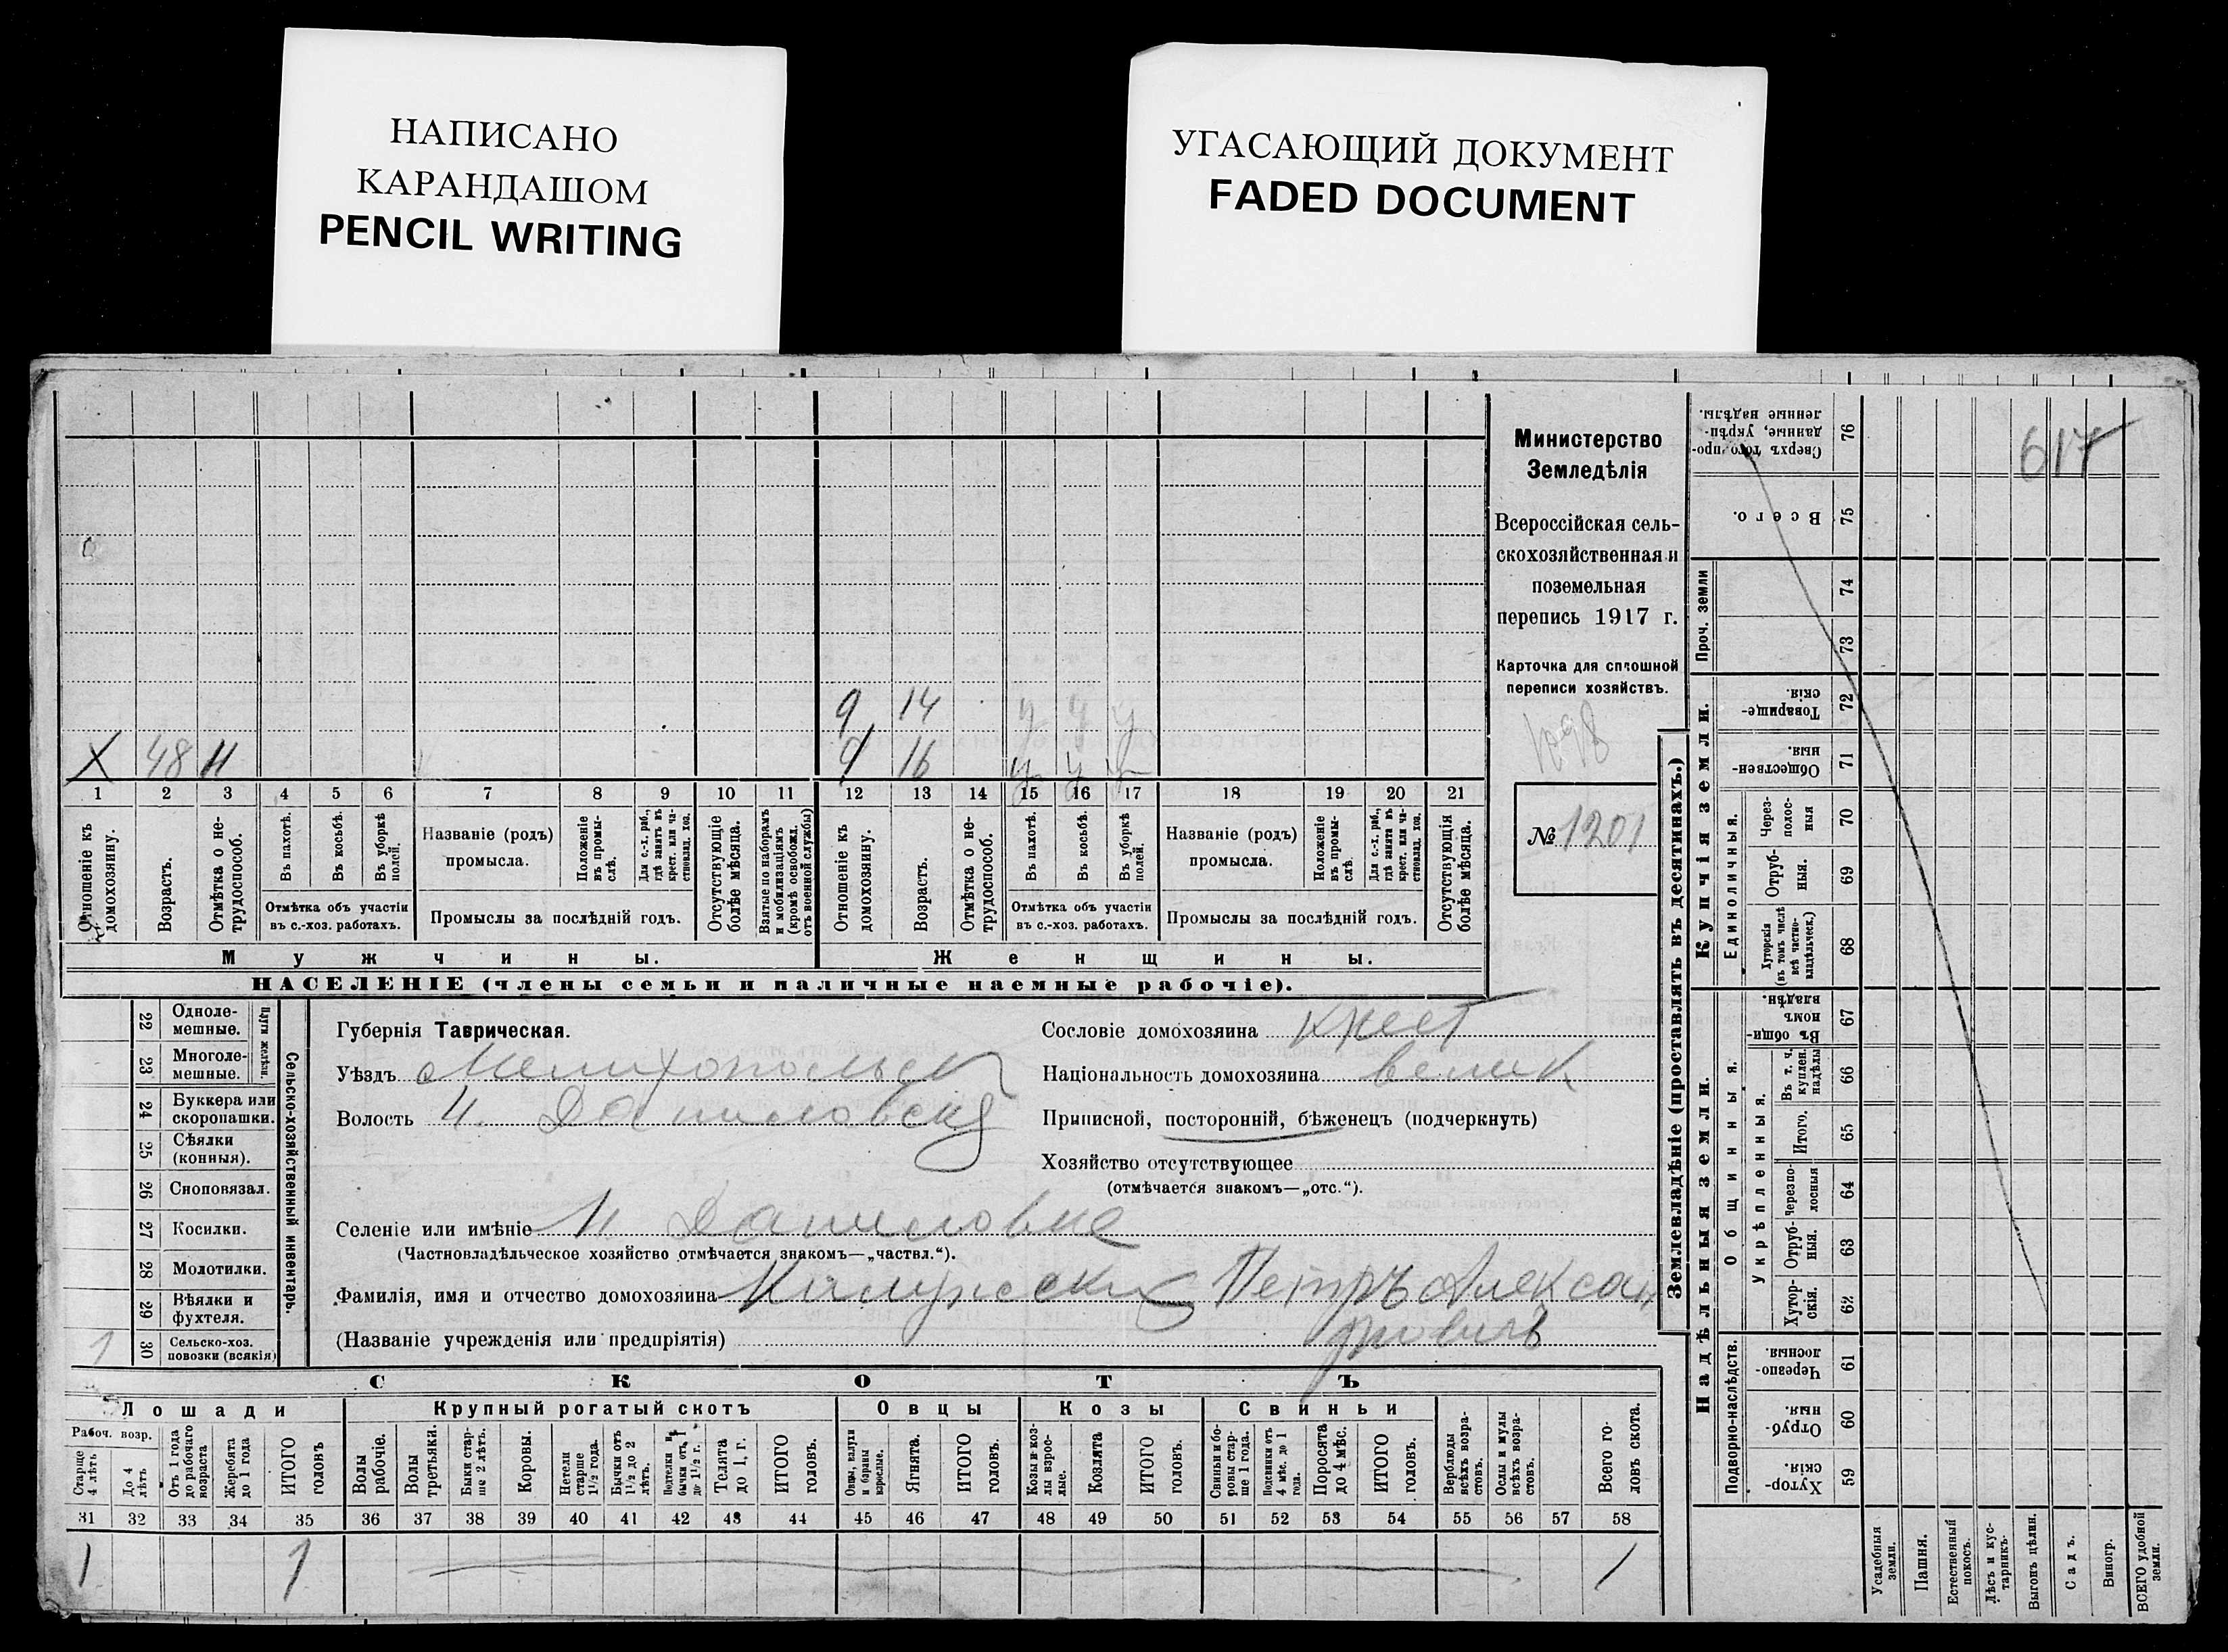 НАПИСАНО
КАРАНДАШОМ
PENCIL WRITING
УГАСАЮЩИЙ ДОКУМЕНТ
FADED DOCUMENT
9 14 у у у
Х 48 Н
9 16 у у у
1 2 3 4 5 6 7 8 9 10 11 12 13 14 15 16 17 18 19 20 21
Отношеніе къ домохозяину.
Возрастъ.
Отмѣтка о нетрудоспособ.
Въ пахотѣ.
Въ косьбѣ.
Въ уборкѣ полей.
Отмѣтка объ участіи
въ с.-хоз. работахъ.
Названіе (родъ)
промысла.
Положеніе въ промыслѣ.
Для с.-х. раб., гдѣ занятъ въ крест. или частновлад. хоз.
Промыслы за послѣдній годъ.
Отсутствующіе болѣе мѣсяца.
Взятые по наборамъ и мобилизаціямъ (кромѣ освобожд. отъ военной службы)
Отношеніе къ домохозяину.
Возрастъ.
Отмѣтка о нетрудоспособ.
Въ пахотѣ.
Въ косьбѣ.
Въ уборкѣ полей.
Отмѣтка объ участіи
въ с.-хоз. работахъ.
Названіе (родъ)
промысла.
Положеніе въ промыслѣ.
Для с.-х. раб., гдѣ занята въ крест. или частновлад. хоз.
Промыслы за послѣдній годъ.
Отсутствующія болѣе мѣсяца.
Мужчины.
Женщины.
НАСЕЛЕНІЕ (члены семьи и наличные наемные рабочіе).
Министерство
Земледѣлія
Всероссійская сель-
скохозяйственная и
поземельная
перепись 1917 г.
Карточка для сплошной
переписи хозяйствъ.
1098
№ 1201
22 Одноле-
мешные.
23 Многоле-
мешные.
Плуги желѣзн.
24 Буккера или
скоропашки.
25 Сѣялки
(конныя).
26 Сноповязал.
27 Косилки.
28 Молотилки.
29 Вѣялки и
фухтеля.
1 30 Сельско-хоз.
повозки (всякія)
Сельско-хозяйственный инвентарь.
Губернія Таврическая.
Уѣздъ Мелитопольск
Волость Н. Даниловск
Селеніе или имѣніе Н. Даниловка
(Частновладѣльческое хозяйство отмѣчается знакомъ—„частвл.“).
Фамилія, имя и отчество домохозяина Петръ Алексан
дровичъ
(Названіе учрежденія или предпріятія)
Сословіе домохозяина крест
Національность домохозяина велик
Приписной, посторонній, бѣженецъ (подчеркнуть)
Хозяйство отсутствующее
(отмѣчается знакомъ—„отс.“).
СКОТЪ
Лошади
Рабоч. возр.
Старше 4 лѣтъ
До 4 лѣтъ
Отъ 1 года до рабочаго возраста
Жеребята до 1 года
ИТОГО головъ
Крупный рогатый скотъ
Волы рабочіе.
Волы третьяки.
Быки старше 2 лѣтъ.
Коровы.
Нетели старше 1½ года.
Бычки отъ 1½ до 2 лѣтъ.
Подтелки и бычки отъ 1 до 1½ г.
Телята до 1 г.
ИТОГО головъ.
Овцы
Овцы, валухи и бараны взрослые.
Ягнята.
ИТОГО головъ.
Козы
Козы и козлы взрослые.
Козлята
ИТОГО головъ.
Свиньи
Свиньи и боровы старше 1 года.
Подсвинки отъ 4 мѣс. до 1 года.
Поросята до 4 мѣс.
ИТОГО головъ.
Верблюды всѣхъ возрастовъ.
Ослы и мулы всѣхъ возрастовъ.
Всего головъ скота.
31 32 33 34 35 36 37 38 39 40 41 42 43 44 45 46 47 48 49 50 51 52 53 54 55 56 57 58
1 1 1
Землевладѣніе (проставлять въ десятинахъ.)
Надѣльныя земли.
Купчія земли.
Проч. земли
Подворно-наслѣдств.
Общинныя.
Укрѣпленныя.
Единоличныя.
Сверхъ того проданные, укрѣпленные надѣлы. 76
Всего. 75
74
73
Товарищескія. 72
Общественныя. 71
Черезполосныя 70
Отрубныя. 69
Хуторскія (въ томъ числѣ всѣ частновладѣльческ.) 68
Въ общинномъ владѣн. 67
Въ т. ч. куплен. надѣлы 66
Итого. 65
Черезполосныя 64
Отрубныя. 63
Хуторскія. 62
Черезполосныя. 61
Отрубныя. 60
Хуторскія. 59
617
Усадебныя земли.
Пашня.
Естественный покосъ.
Лѣсъ и кустарникъ.
Выгонъ цѣлин.
Садъ.
Виногр.
ВСЕГО удобной земли.